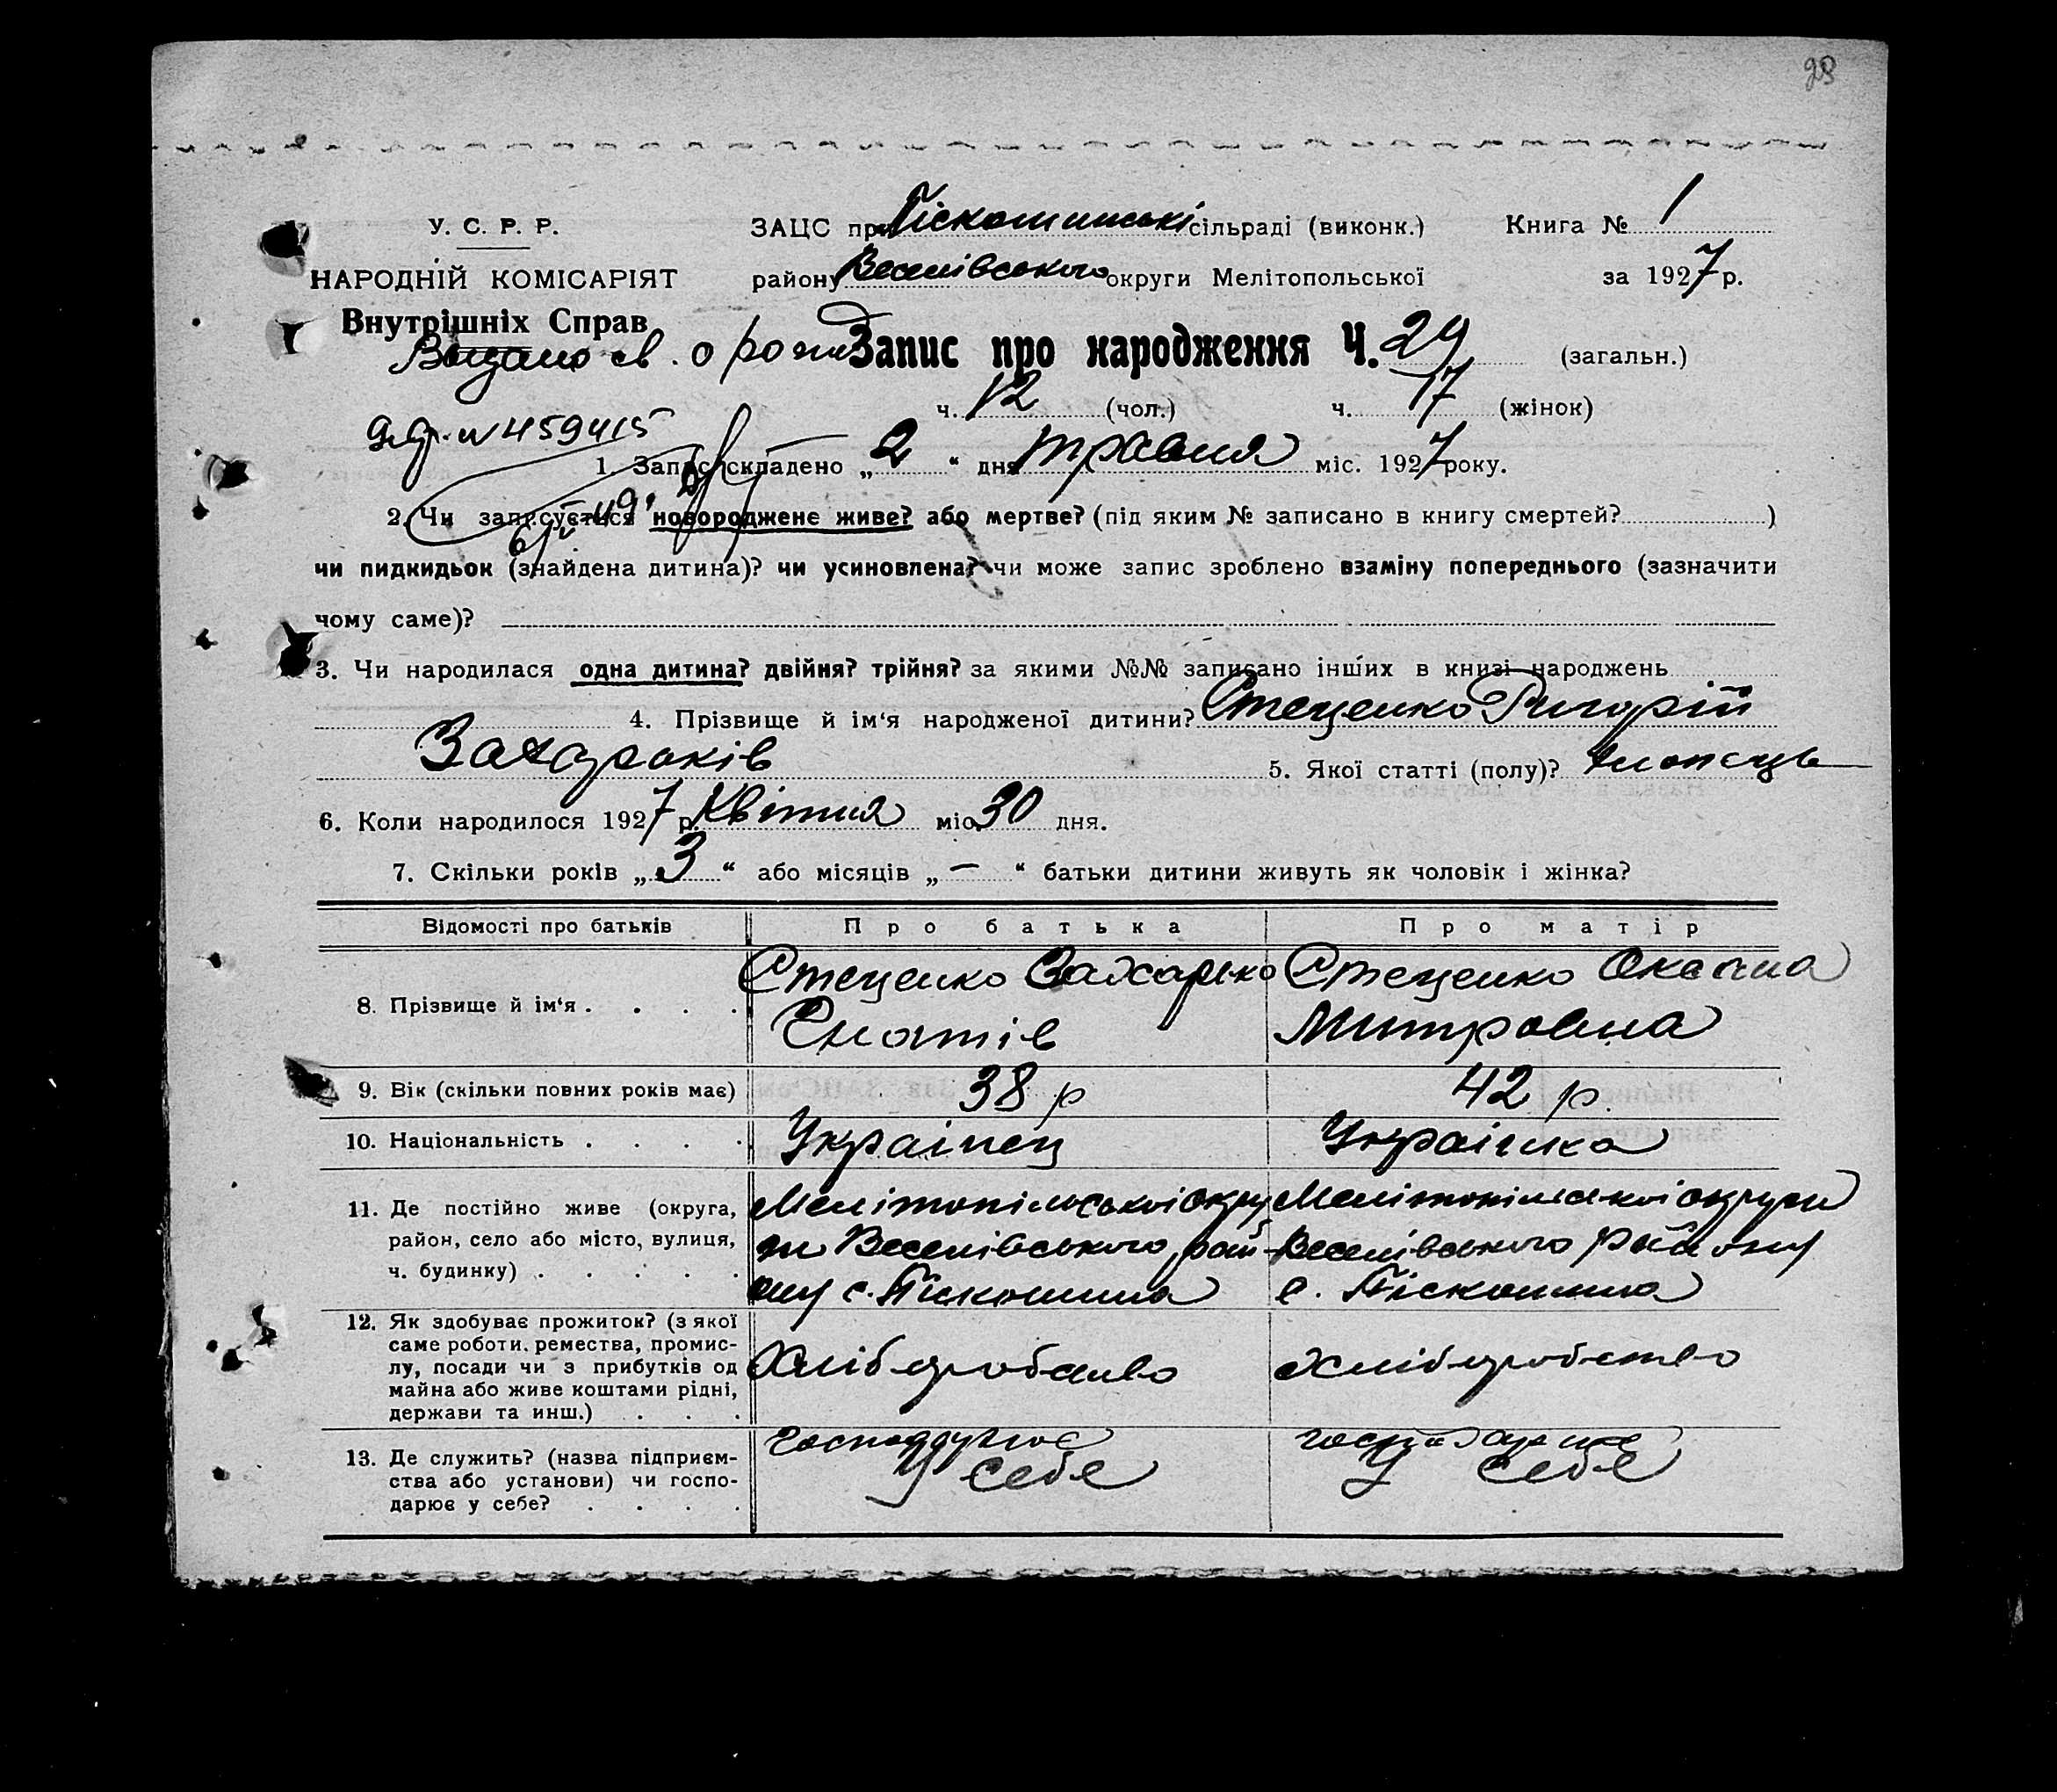 28
У. С. Р. Р.
ЗАЦС при Піскошинські сільраді (виконк.) Книга № 1
НАРОДНІЙ КОМІСАРІЯТ
району Веселівського округи Мелітопольської за 1927 р.
Внутрішніх Справ
Выдано св. о рожд
Запис про народження Ч. 29 (загальн.)
ч. 12 (чол.) ч. 17 (жінок)
№ 459415
1. Запис складено „ 2 “ дня травня міс. 1927 року.
2. Чи записується новороджене живе? або мертве? (під яким № записано в книгу смертей? )
чи пидкидьок (знайдена дитина)? чи усиновлена? чи може запис зроблено взаміну попереднього (зазначити
чому саме)?
3. Чи народилася одна дитина? двійня? трійня? за якими №№ записано інших в книзі народжень
4. Прізвище й ім‘я народженої дитини? Стеценко Григорій
Захарьків 5. Якої статті (полу)? хлопець
6. Коли народилося 1927 р. Квітня міс. 30 дня.
7. Скільки років „ 3 “ або місяців „ — “ батьки дитини живуть як чоловік і жінка?
Відомості про батьків Про батька Про матір
8. Прізвище й ім‘я . . . . Стеценко Захарько Стеценко Оксана
Гнатів Митровна
9. Вік (скільки повних років має) 38 р 42 р.
10. Національність . . . . Українец Українка
11. Де постійно живе (округа, Мелітопільської окру Мелітопільської округи
район, село або місто, вулиця, ги Веселівського рай- Веселівського району
ч. будинку) . . . . . ону с. Піскошина с. Піскошина
12. Як здобуває прожиток? (з якої
саме роботи. ремества, промис-
лу, посади чи з прибутків од Хліборобство Хліборобство
майна або живе коштами рідні,
держави та инш.) . . .
13. Де служить? (назва підприєм- господарює господарює
ства або установи) чи госпо- у себе у себе
дарює у себе? . . . .